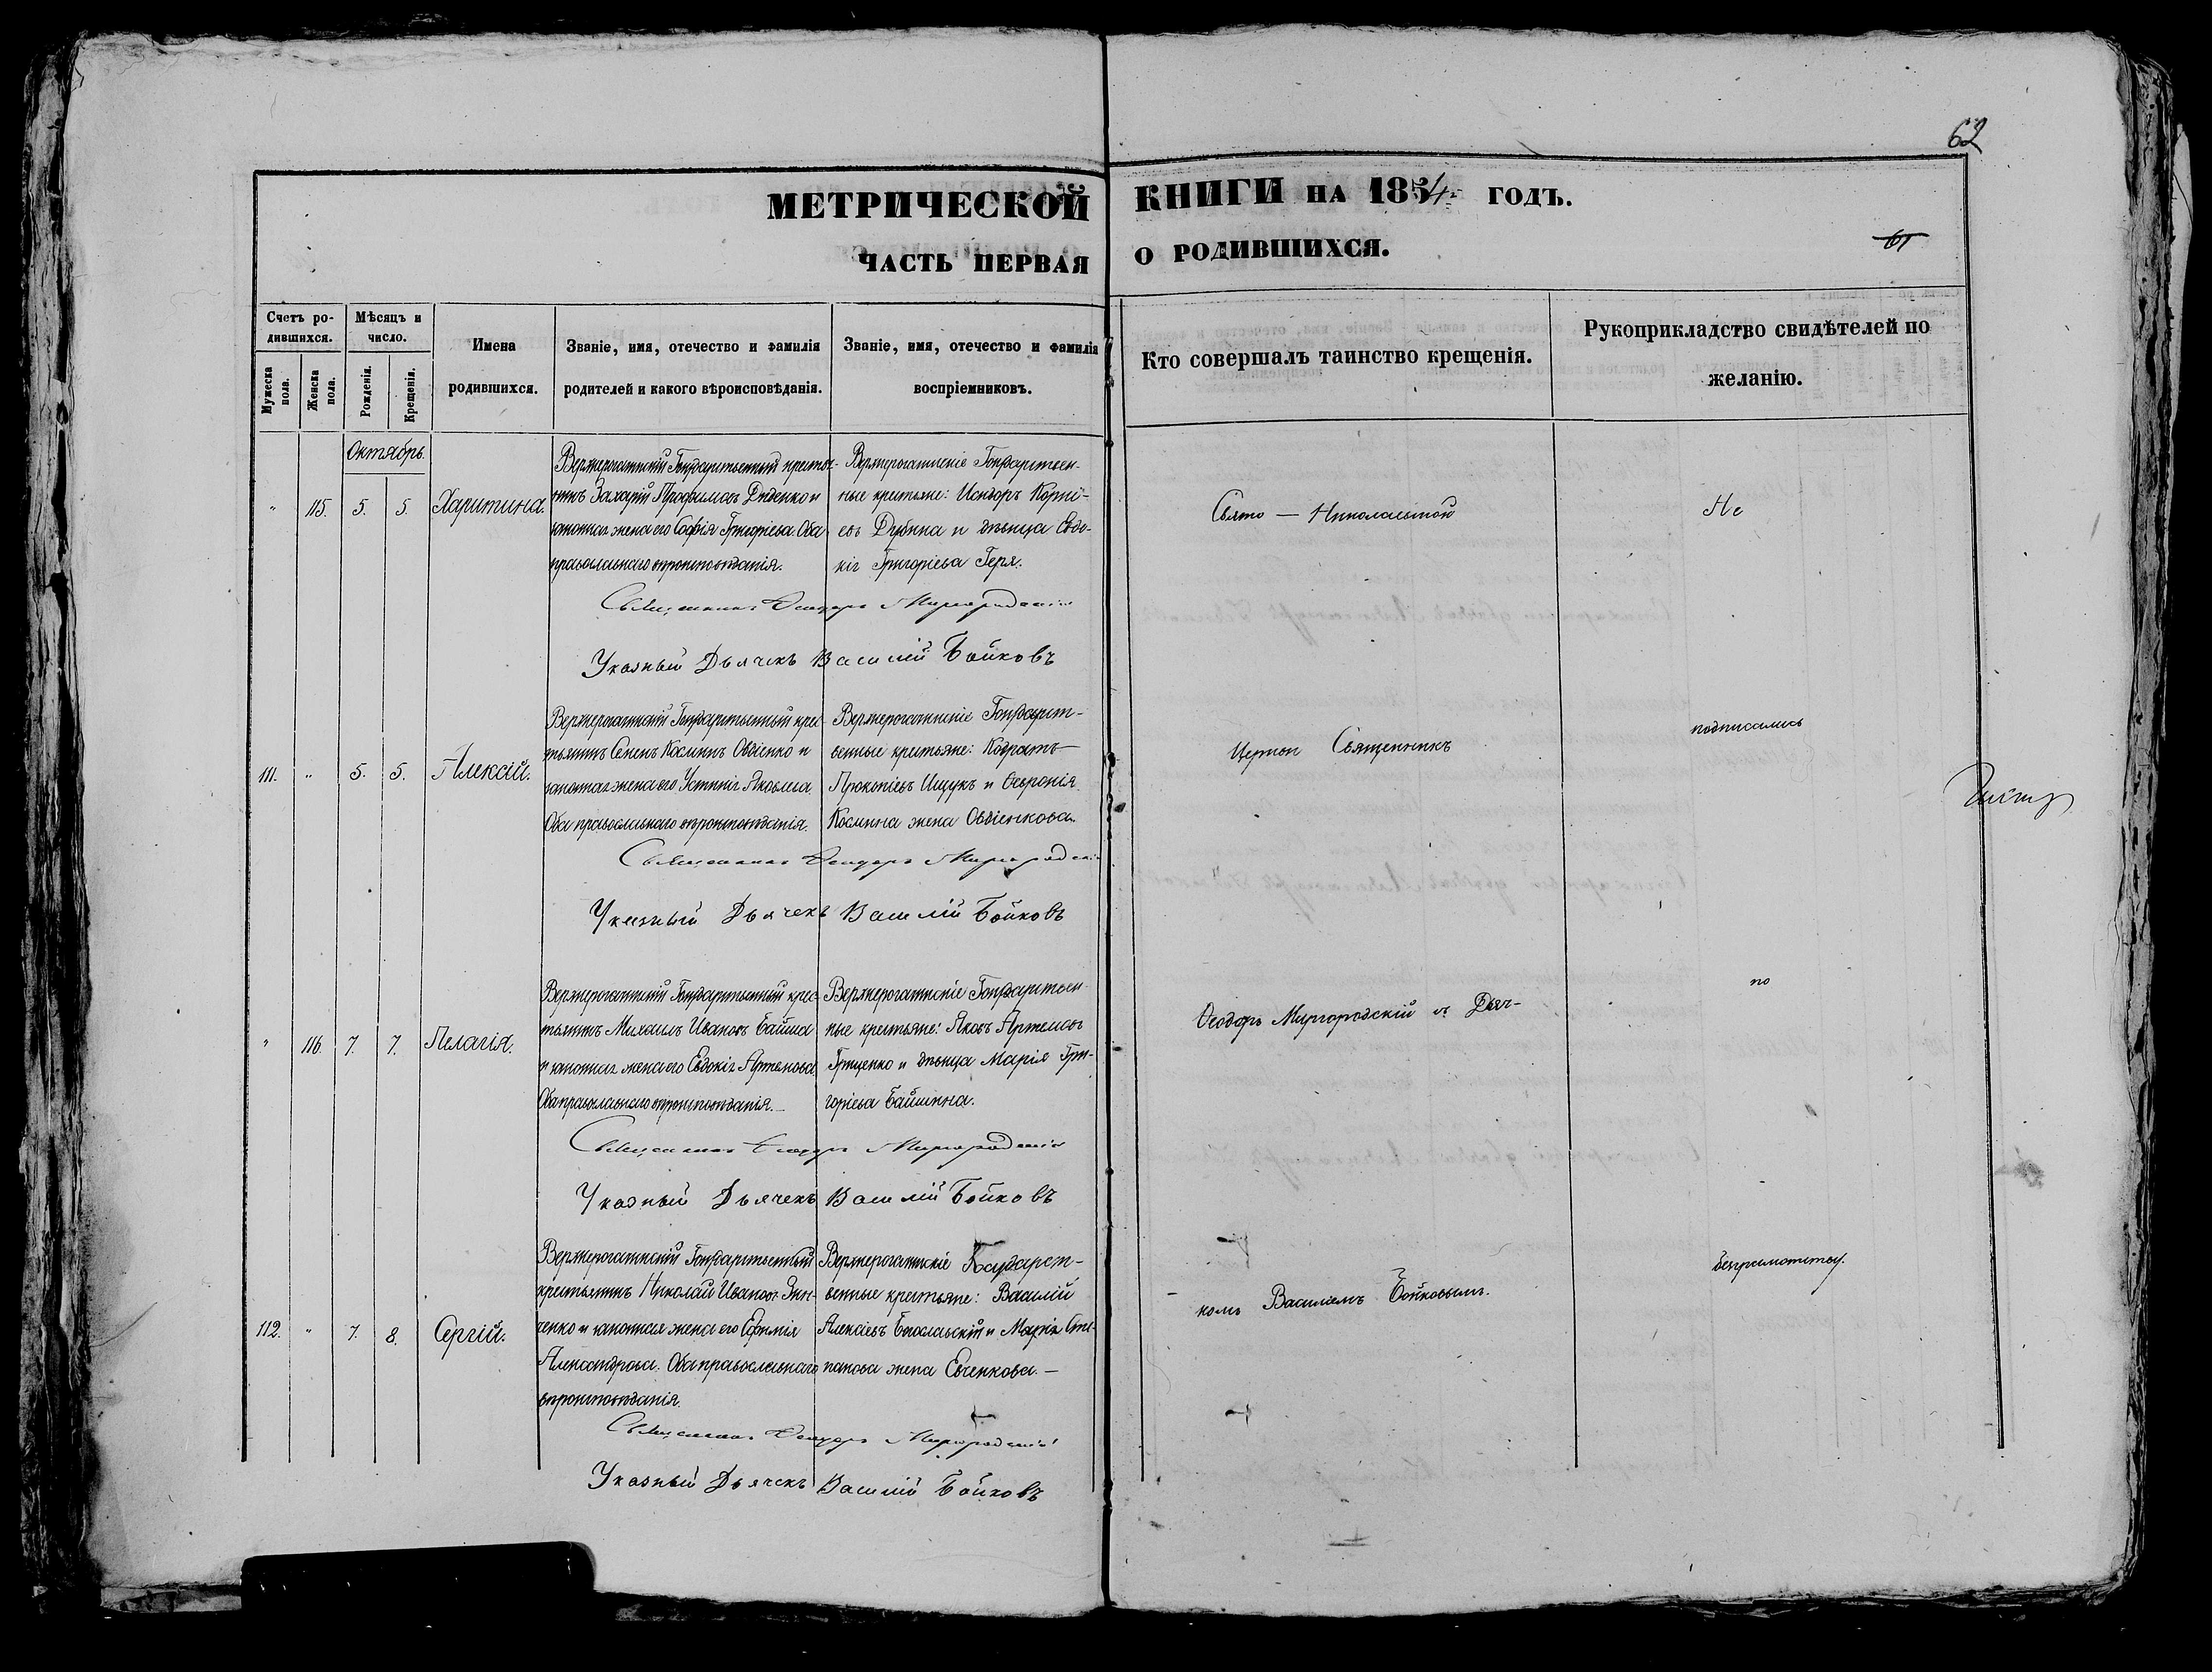 62
МЕТРИЧЕСКОЙ КНИГИ НА 1854 ГОДЪ.
ЧАСТЬ ПЕРВАЯ О РОДИВШИХСЯ.
61
Счетъ ро-
дившихся.
Мѣсяцъ и
число.
Мужеска
пола.
Женска
пола.
Рожденія.
Крещенія.
Имена
родившихся.
Званіе, имя, отечество и фамилія
родителей и какого вѣроисповѣданія.
Званіе, имя, отечество и фамилія
воспріемниковъ.
Кто совершалъ таинство крещенія.
Рукоприкладство свидѣтелей по
желанію.
Октябрь.
" 115. 5. 5. Харитина.
Верхнерогачикскій Государственный крестья-
нинъ Захарій Трофимовъ Диденко и
законная жена его Софія Григоріева. Оба
православнаго вѣроисповѣданія.
Верхнерогачикскіе Государствен-
ные крестьяне: Исидоръ Корнѣ-
евъ Дубина и дѣвица Евдо-
кія Григоріева Геря.
Священникъ Ѳеодоръ Миргородскій
Указный Дьячекъ Василій Бойковъ
111. " 5. 5. Алексій.
Верхнерогачикскій Государственный крес-
тьянинъ Семенъ Косминъ Овдіенко и
законная жена его Устинія Яковлева.
Оба православнаго вѣроисповѣданія.
Верхнерогачикскіе Государст-
венные крестьяне: Кодратъ
Прокопіевъ Ищукъ и Ѳевронія
Космина жена Овдіенкова.
Священникъ Ѳеодоръ Миргородскій
Указный Дьячекъ Василій Бойковъ
" 116. 7. 7. Пелагія.
Верхнерогачикскій Государственный крес-
тьянинъ Михаилъ Ивановъ Байша
и законная жена его Евдокія Артемова
Оба православнаго вѣроисповѣданія.
Верхнерогачикскіе Государствен-
ные крестьяне: Яковъ Артемовъ
Гриценко и дѣвица Марія Гри-
горіева Байшина.
Священникъ Ѳеодоръ Миргородскій
Указный Дьячекъ Василій Бойковъ
112. " 7. 8. Сергій.
Верхнерогачикскій Государственный
крестьянинъ Николай Ивановъ
ченко и законная жена его Ефимія
Александрова. Оба православнаго
вѣроисповѣданія.
Верхнерогачикскіе Государст-
венные крестьяне: Василій
Алексіевъ Богославскій и Марія Сте-
панова жена Евченкова.
Священникъ Ѳеодоръ Миргородскій
Указный Дьячекъ Василій Бойковъ
Свято — Николаевской
Церкви Священникъ
Ѳеодоръ Миргородскій съ Дьяч-
комъ Василіемъ Бойковымъ.
Не
подписались
по
безграмотству.